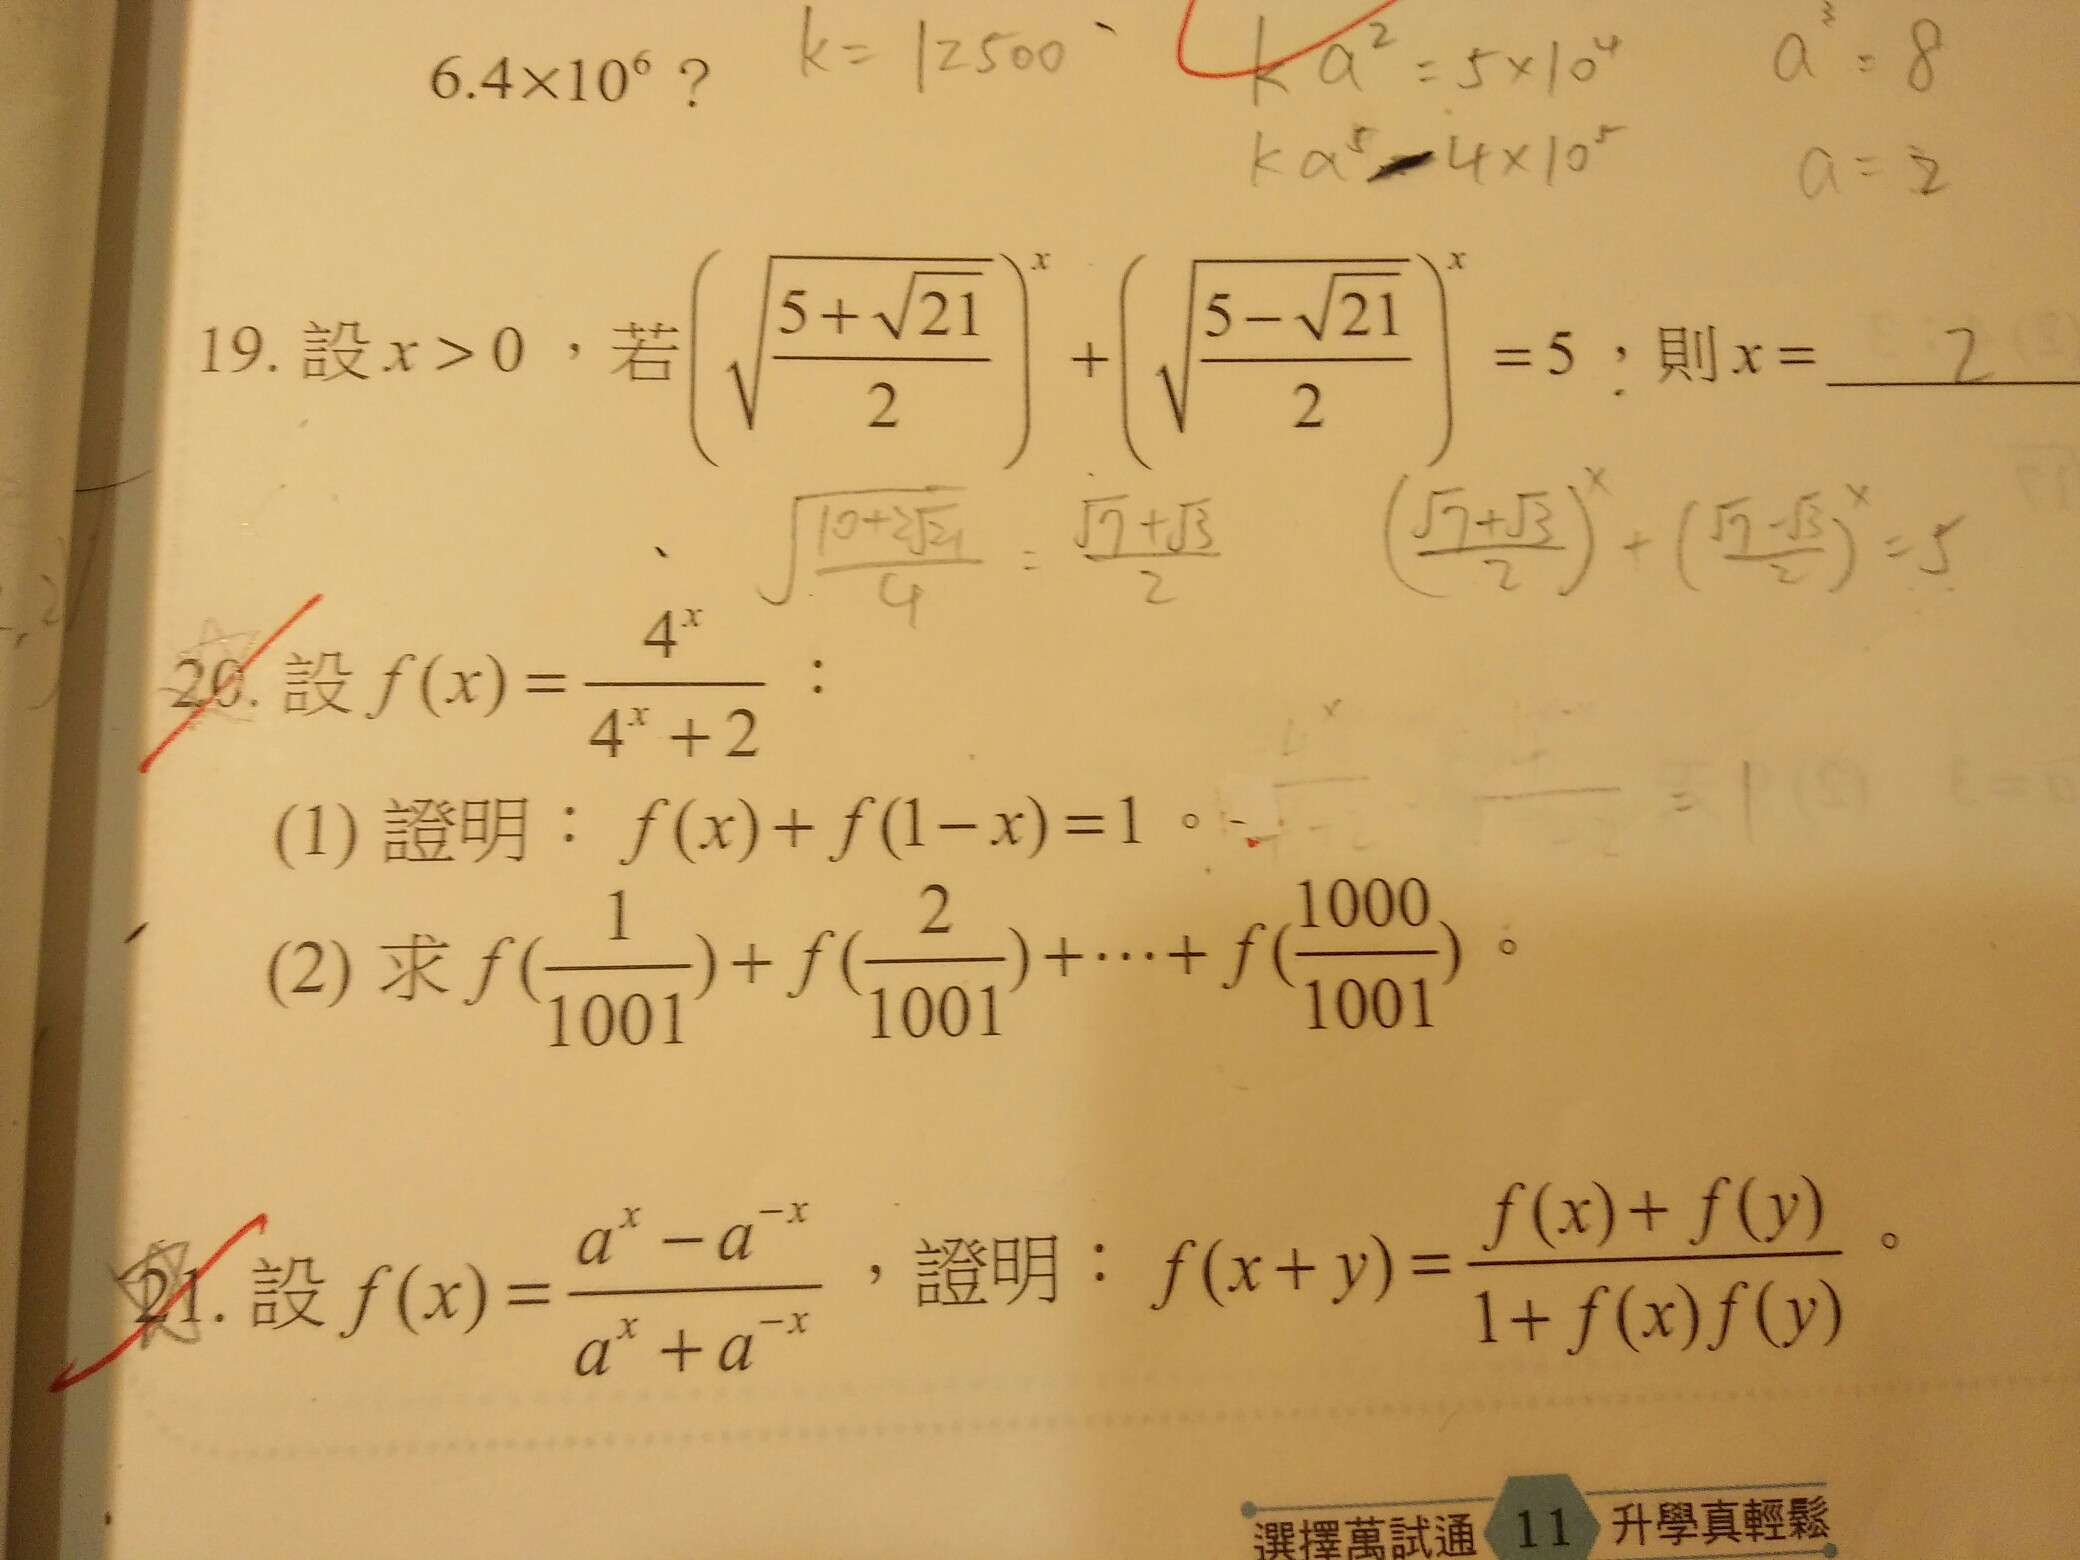 6.4×10⁶？ k = 12500 ka² = 5×10⁴ a³ = 8
ka⁵ 4×10⁵ a = 2
19. 設 x > 0，若 (√((5+√21)/2))^x + (√((5−√21)/2))^x = 5，則 x = 2
√((10+2√21)/4) = (√7+√3)/2 ((√7+√3)/2)^x + ((√7−√3)/2)^x = 5
20. 設 f(x) = 4^x/(4^x+2)：
(1) 證明：f(x) + f(1−x) = 1。
(2) 求 f(1/1001) + f(2/1001) + ⋯ + f(1000/1001)。
21. 設 f(x) = (a^x − a^−x)/(a^x + a^−x)，證明：f(x+y) = (f(x)+f(y))/(1+f(x)f(y))。
選擇萬試通 11 升學真輕鬆